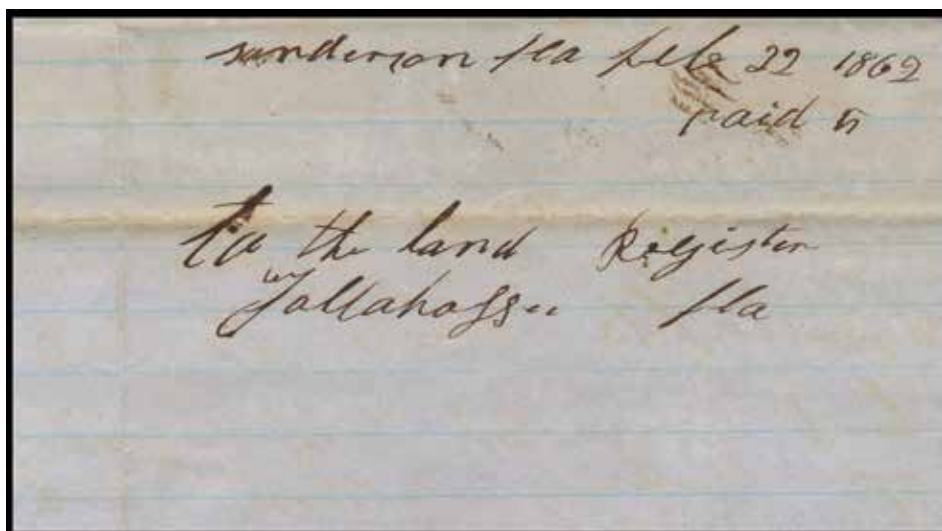 sanderson fla feb 22 1862
paid 5
to the land Register
Tallahassee fla